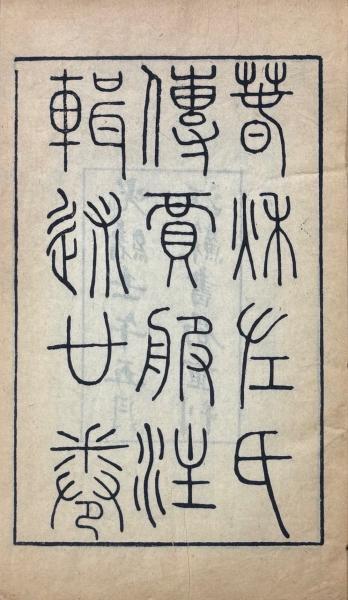 春秋左氏
傳賈服注
輯述廿卷